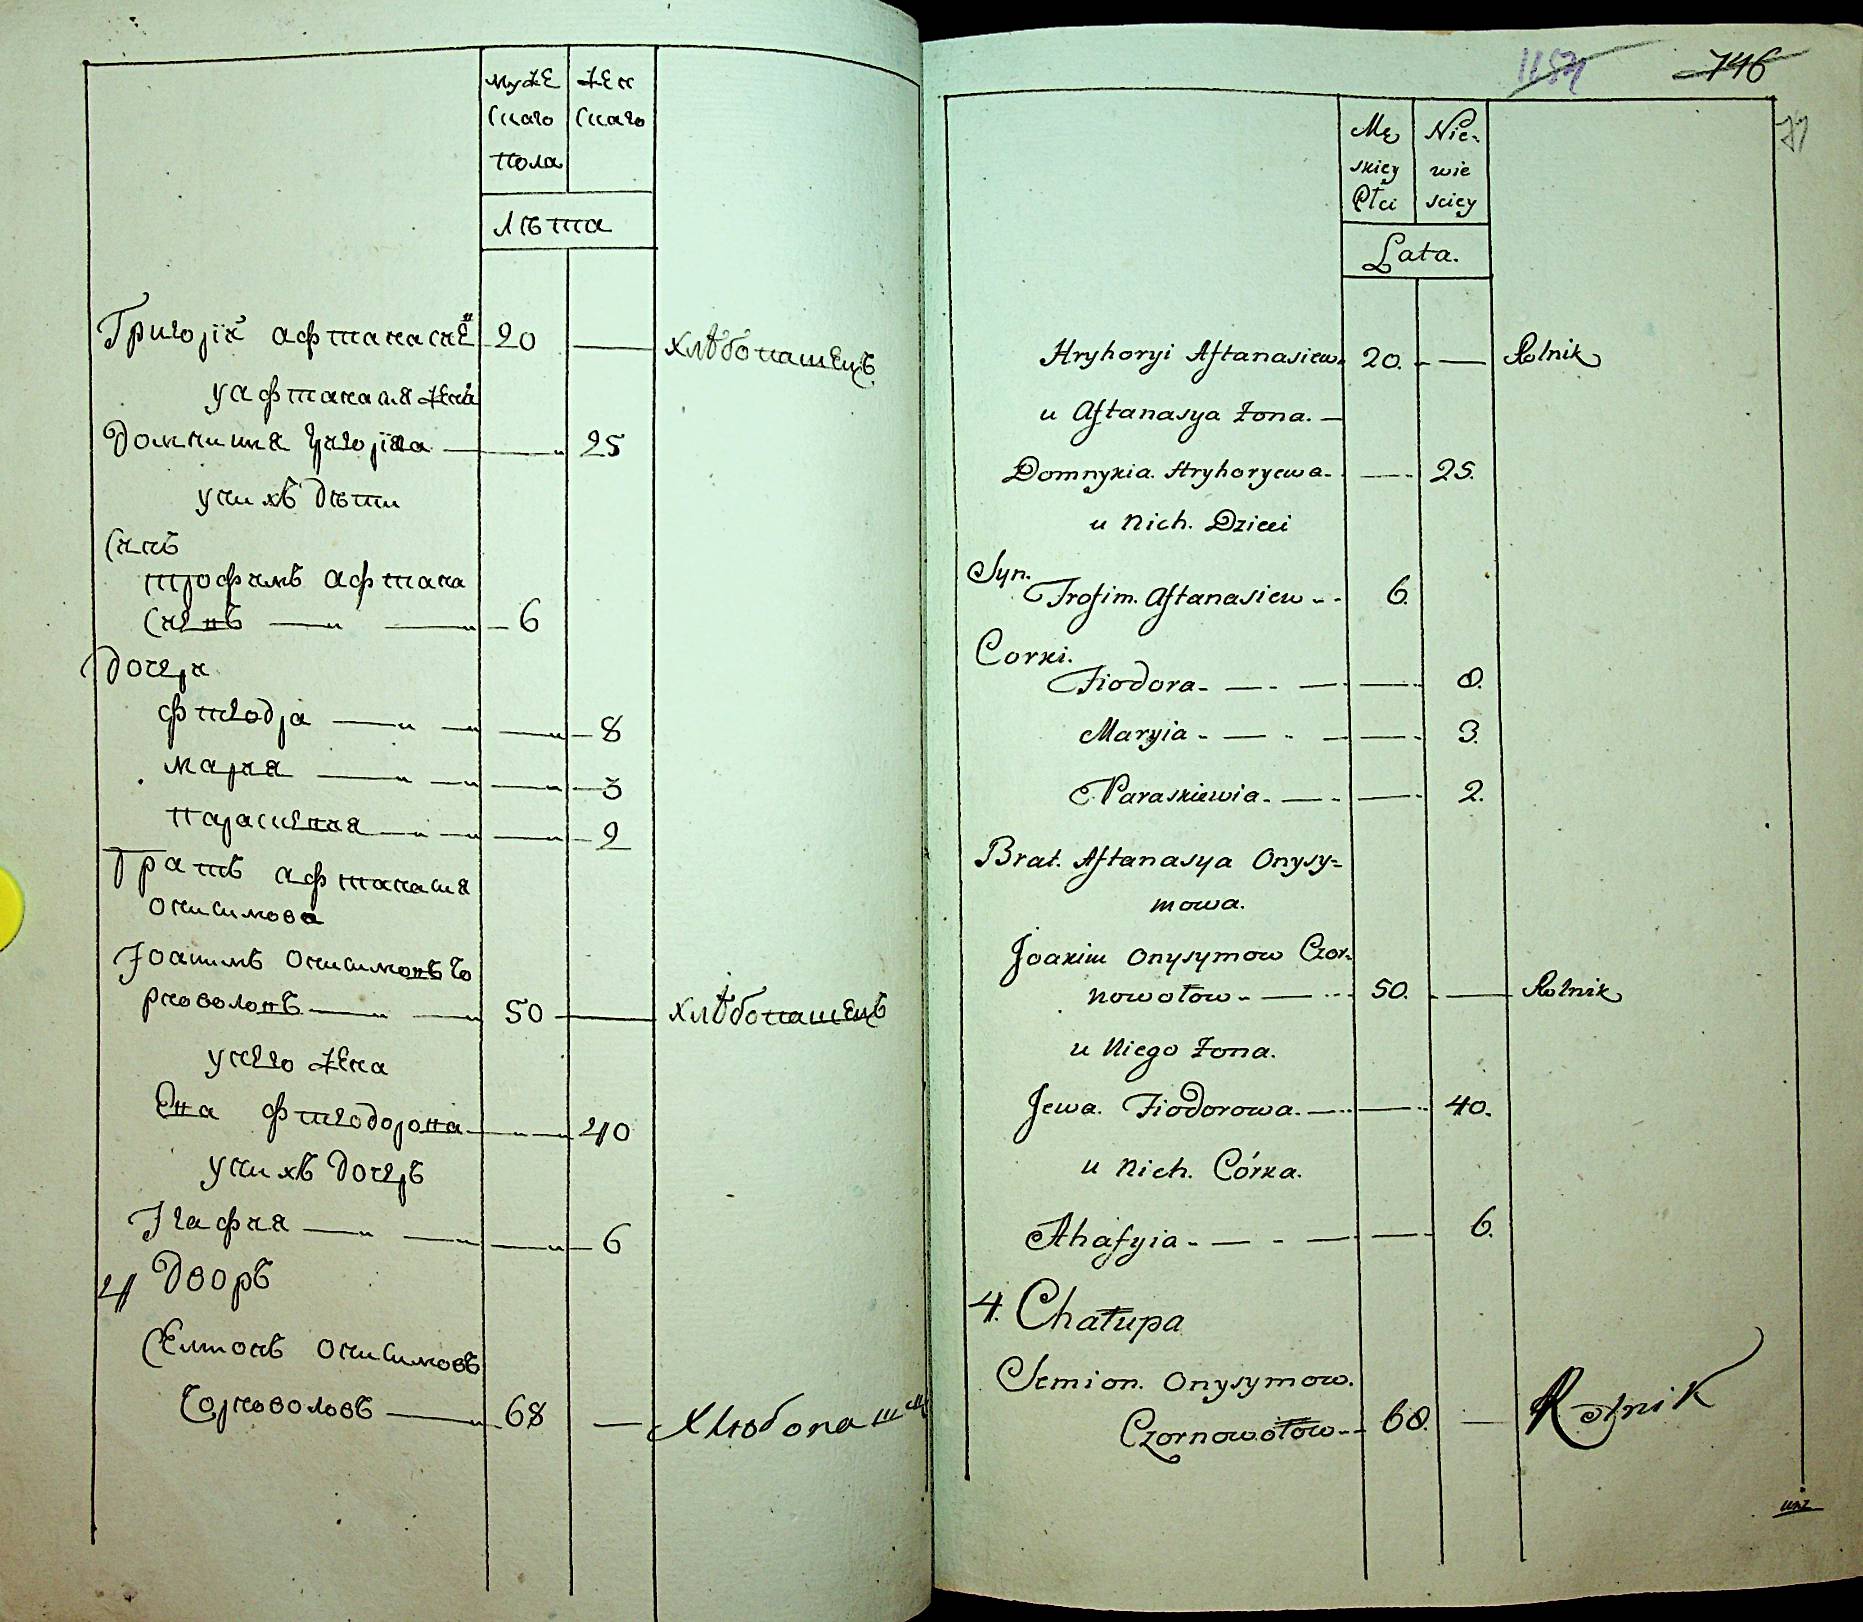 муже жен
скаго скаго
пола
лѣта
Григорій афтанасіе 20 хлѣбопашецъ
у афтанасия жена
Домникия григорїва 25
у них дѣти
Синъ
трофимъ афтана
сиевъ 6
Дочери
фтеодра 8
мария 3
параскевия 2
Братъ афтанасия
онисимова
Іоакимъ онисимовъ Чо
рноволовъ 50 хлѣбопашецъ
у него жена
Ева фтеодорова 40
у нихъ дочеръ
Агафия 6
4 Дворъ
Семионъ онисимовъ
Чорноволовъ 68 Хлюбопаш
1157 746
71
Mę Nie-
skiey wie
Płci sciey
Lata.
Hryhoryi Aftanasiew. 20. Rolnik
u Aftanasya Żona.
Domnykia. Hryhoryewa. 25.
u Nich. Dzieci
Syn.
Trofim. Aftanasiew 6.
Corki.
Fiodora 8.
Maryia 3.
Paraskiewia 2.
Brat. Aftanasya Onysy=
mowa.
Joakim Onysymow Czor-
nowołow 50. Rolnik
u Niego Żona.
Jewa. Fiodorowa. 40.
u Nich. Córka.
Ahafyia 6.
4. Chałupa
Semion. Onysymow.
Czornowołow 68. Rolnik